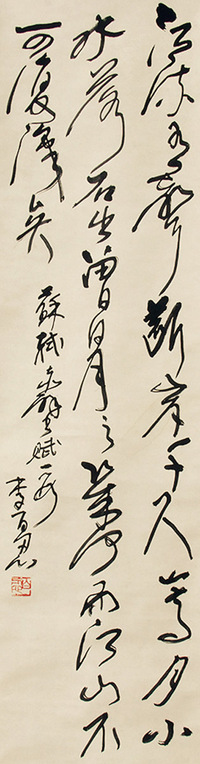 江流有聲斷岸千尺山高月小
水落石出曾日月之幾何而江山不
可復識矣
蘇軾赤壁賦一段
李百忍